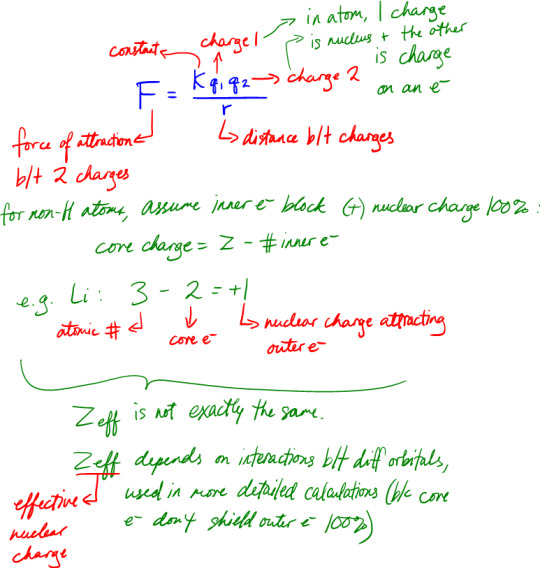 in atom, 1 charge
is nucleus + the other
is charge
on an e-
constant
charge 1
F = K q1 q2
r
charge 2
force of attraction
b/t 2 charges
distance b/t charges
for non-H atoms, assume inner e- block (+) nuclear charge 100% :
core charge = Z - # inner e-
e.g. Li: 3 - 2 = +1
atomic #
core e-
nuclear charge attracting
outer e-
Zeff is not exactly the same.
Zeff depends on interactions b/t diff orbitals,
used in more detailed calculations (b/c core
e- don't shield outer e- 100%)
effective
nuclear
charge